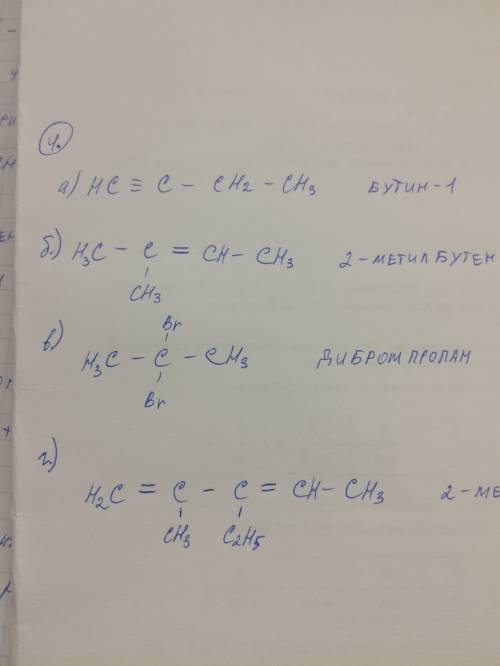 4.
а) HC ≡ C - CH2 - CH3 БУТИН-1
Б.) H3C - C = CH - CH3 2-МЕТИЛБУТЕН
CH3
Br
в) H3C - C - CH3 ДИБРОМПРОПАН
Br
г) H2C = C - C = CH - CH3 2-МЕ
CH3 C2H5